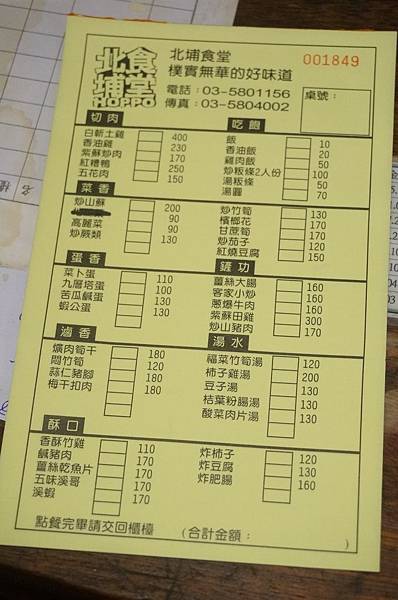 北食
埔堂
HOPPO
北埔食堂
樸實無華的好味道
電話：03-5801156
傳真：03-5804002
001849
桌號：
切肉
白斬土雞 400
香油雞 230
紫蘇炒肉 170
紅糟鴨 250
五花肉 150
吃飽
飯 10
香油飯 20
雞肉飯 50
炒粄條2人份 100
湯粄條 50
湯圓 70
菜香
炒山蘇 200
90
高麗菜 90
炒蕨類 130
炒竹筍 130
檳榔花 170
甘蔗筍 170
炒茄子 120
紅燒豆腐 150
蛋香
菜卜蛋 110
九層塔蛋 100
苦瓜鹹蛋 130
蝦公蛋 130
鏟功
薑絲大腸 160
客家小炒 160
蔥爆牛肉 160
紫蘇田雞 300
炒山豬肉 170
滷香
爌肉筍干 180
悶竹筍 120
蒜仁豬腳 120
梅干扣肉 180
湯水
福菜竹筍湯 120
柿子雞湯 200
豆子湯 130
桔葉粉腸湯 130
酸菜肉片湯 130
酥口
香酥竹雞 110
鹹豬肉 170
薑絲乾魚片 170
五味溪哥 170
溪蝦 170
炸柿子 120
炸豆腐 130
炸肥腸 160
點餐完畢請交回櫃檯 (合計金額： )